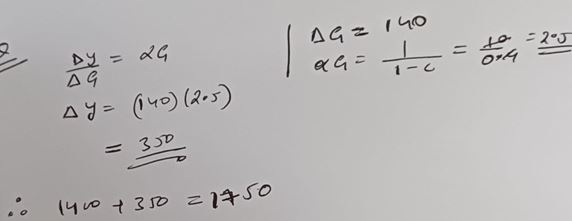 ΔY/ΔG = αG
ΔY = (140)(2.5)
= 350
∴ 1400 + 350 = 1750
ΔG = 140
αG = 1/(1-c) = 10/0.4 = 2.5